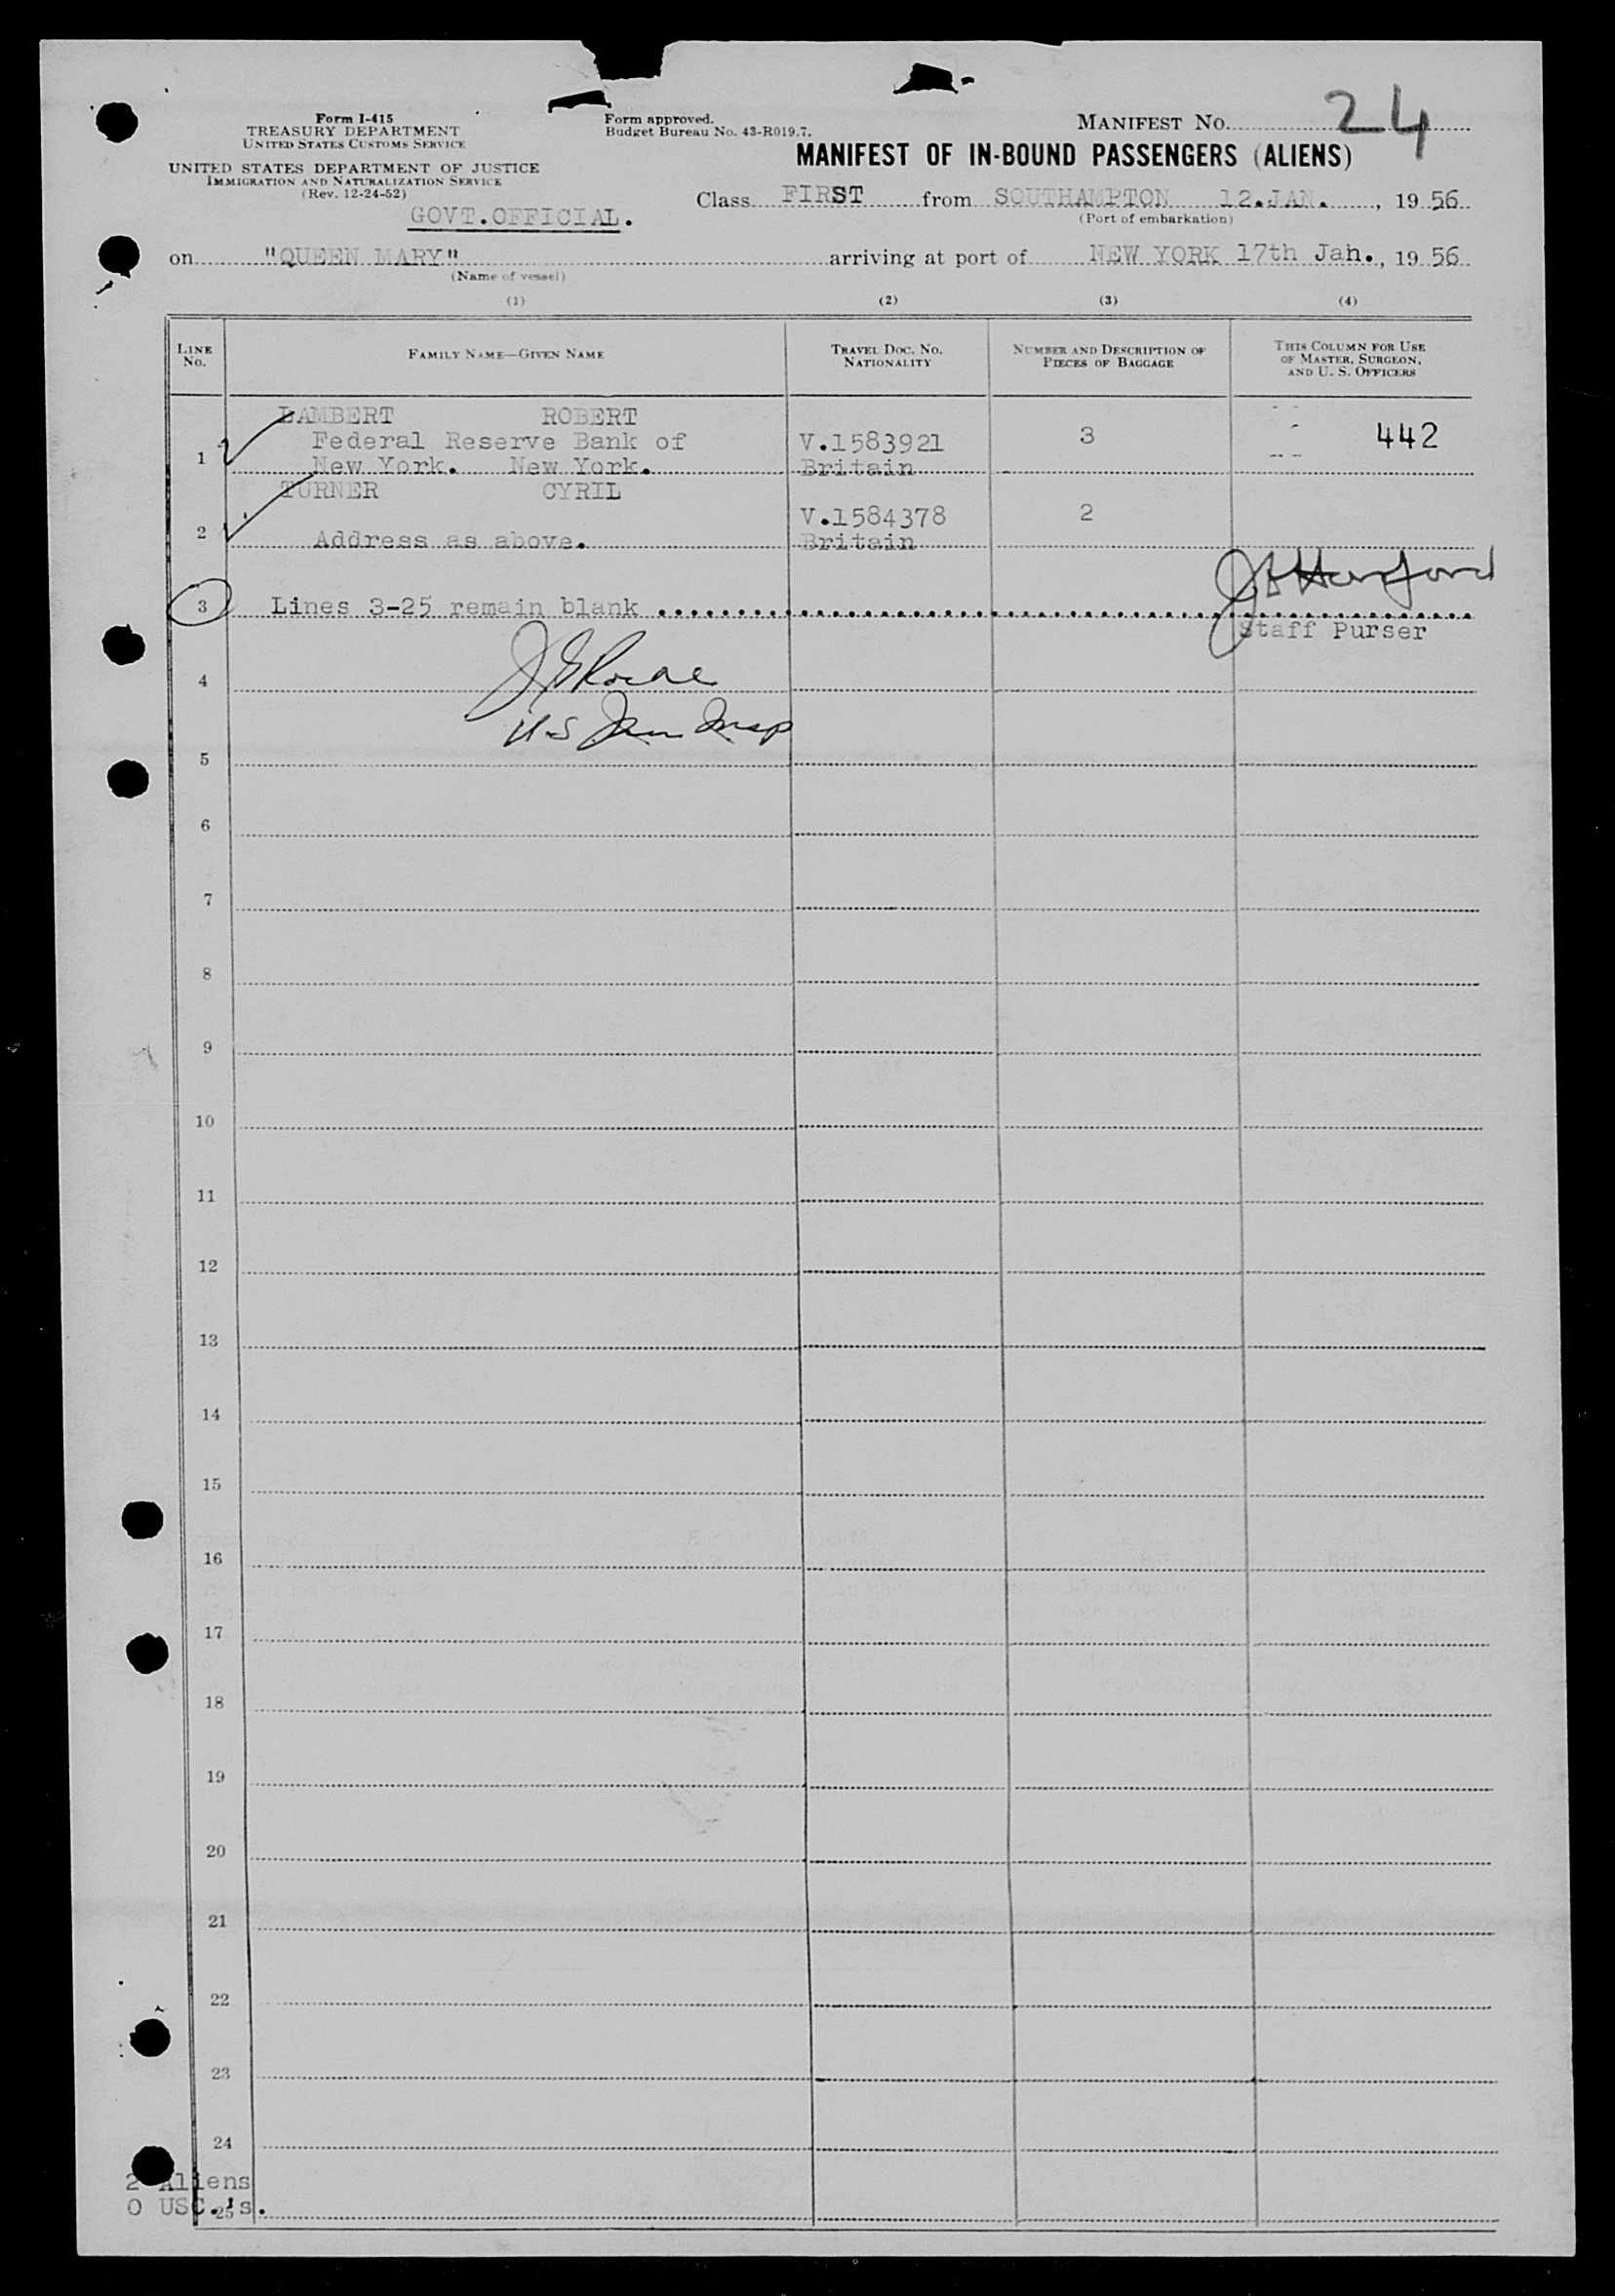 Form I-415
TREASURY DEPARTMENT
UNITED STATES CUSTOMS SERVICE
UNITED STATES DEPARTMENT OF JUSTICE
IMMIGRATION AND NATURALIZATION SERVICE
(Rev. 12-24-52)
GOVT.OFFICIAL.
Form approved.
Budget Bureau No. 43-R019.7.
MANIFEST NO. 24
MANIFEST OF IN-BOUND PASSENGERS (ALIENS)
Class FIRST from SOUTHAMPTON 12.JAN. , 19 56
(Port of embarkation)
on "QUEEN MARY" arriving at port of NEW YORK 17th Jan. , 19 56
(Name of vessel)
(1) (2) (3) (4)
LINE NO.
FAMILY NAME—GIVEN NAME
TRAVEL DOC. NO. NATIONALITY
NUMBER AND DESCRIPTION OF PIECES OF BAGGAGE
THIS COLUMN FOR USE OF MASTER, SURGEON, AND U. S. OFFICERS
LAMBERT ROBERT
Federal Reserve Bank of V.1583921 3 442
1 New York. New York. Britain
TURNER CYRIL
V.1584378 2
2 Address as above. Britain
3 Lines 3-25 remain blank
Staff Purser
4
U.S Imm Insp
5
6
7
8
9
10
11
12
13
14
15
16
17
18
19
20
21
22
23
24
2 Aliens
0 USC.'s.
25